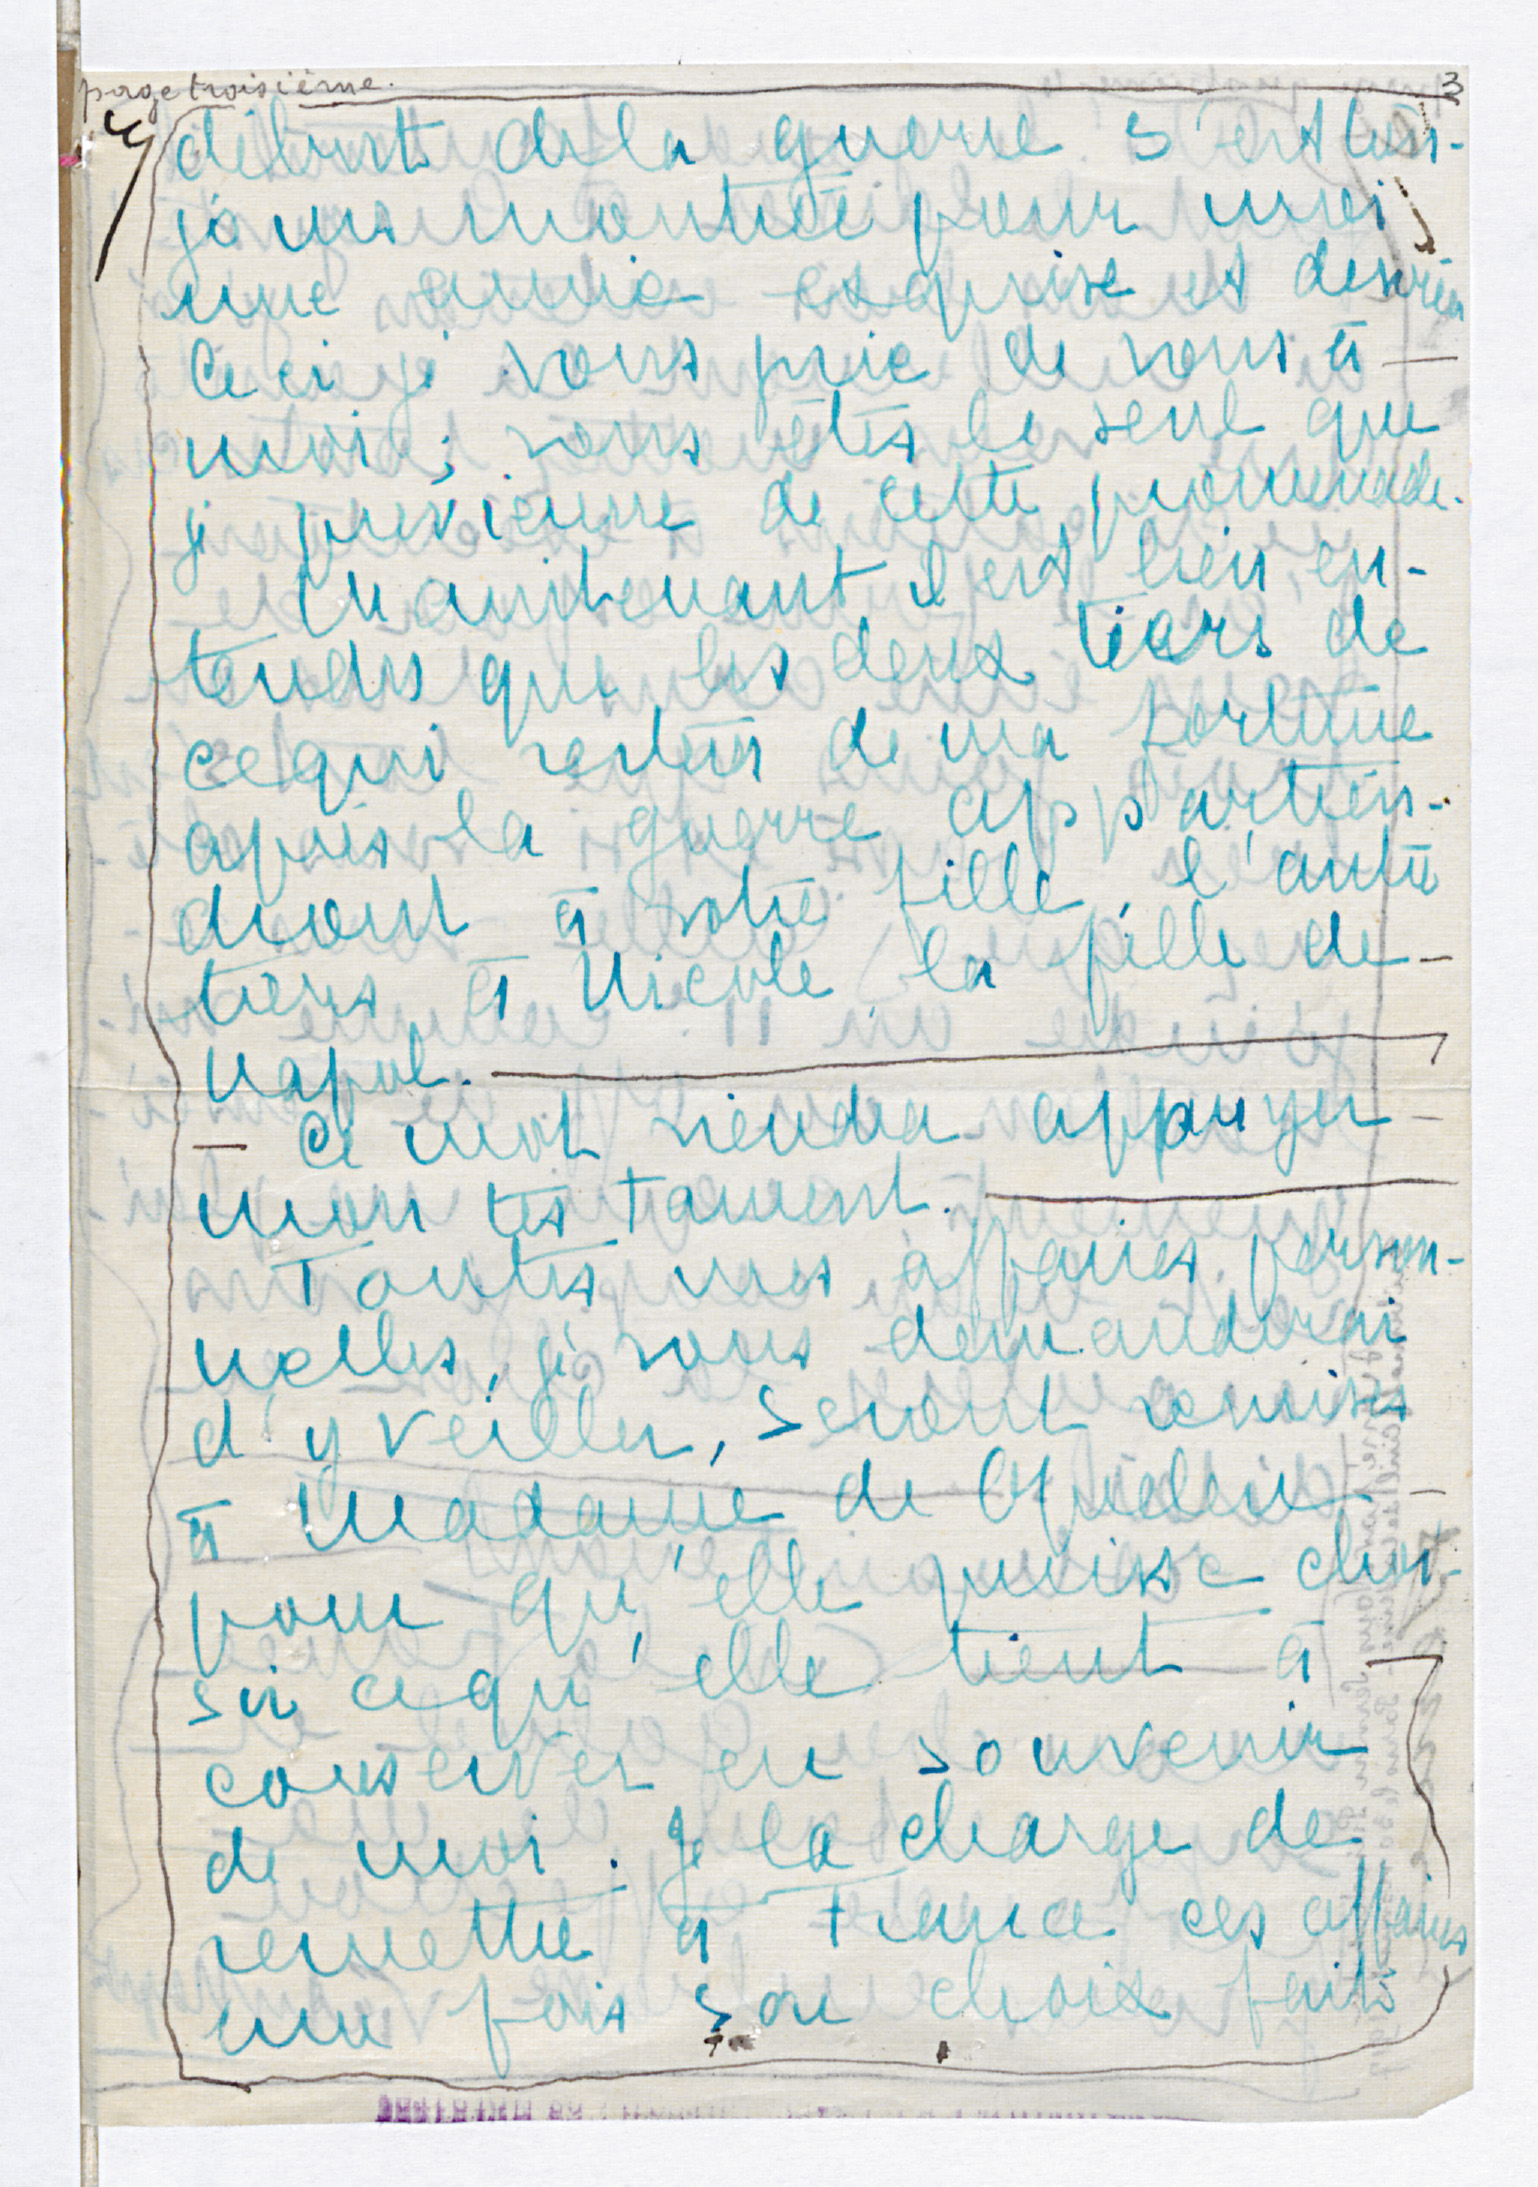 page troisième.
3
début de la guerre s'est tou-
jours montrée pour moi
une amie exquise et
Ceci je vous prie de vous à
moi ; vous êtes le seul que
je prévienne de cette promenade.
Maintenant il est bien en-
tendu que les deux tiers de
ce qui restera de ma fortune
après la guerre appartien-
dront à votre fille, l'autre
tiers à Nicole, la fille de
Napol.
Ce mot viendra appuyer
mon testament.
Toutes mes affaires person-
nelles, je vous demanderai
d'y veiller, seront remises
à Madame de
pour qu'elle puisse choi-
sir ce qu'elle tient à
conserver en souvenir
de moi. Je la charge de
remettre à France ces affaires
une fois son choix fait